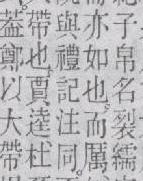 子帛名裂繻
而亦如也而厲
與禮記注同
帶也賈逵杜
蓋鄭以大帶